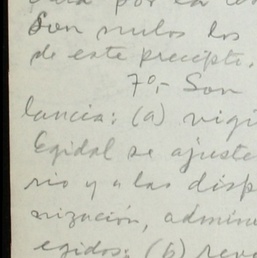 por la
Son nulos los
de este precepto.
7º.- Son
lancia: (a) vigi
Egidal se ajuste
rio y a las disp
nización, admini
egidos: (b) revi